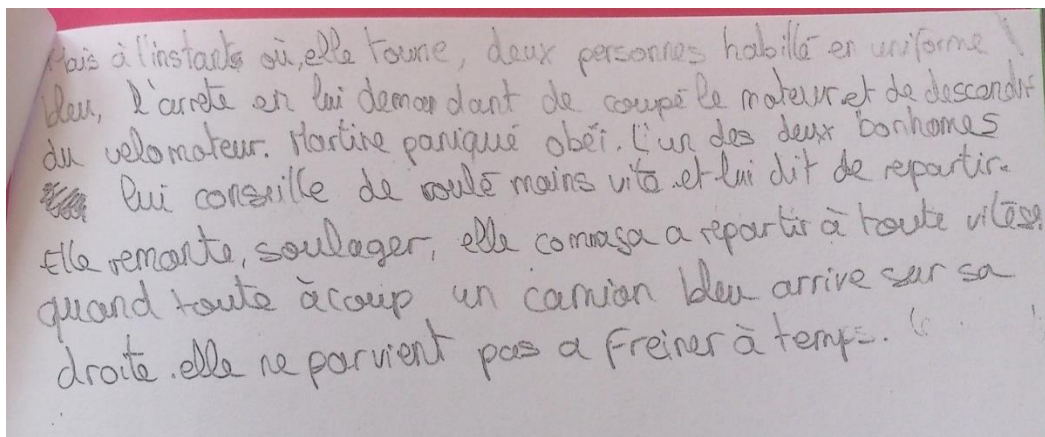 Mais à l'instants où, elle tourne, deux personnes habillé en uniforme
bleu, l'arrete en lui demandant de coupé le moteur et de descendre
du velomoteur. Martine paniqué obéi. L'un des deux bonhomes
lui conseille de roulé moins vite et lui dit de repartir.
Elle remonte, soulager, elle commaça a repartir à toute vitèsse
quand toute à coup un camion bleu arrive sur sa
droite. elle ne parvient pas a freiner à temps.